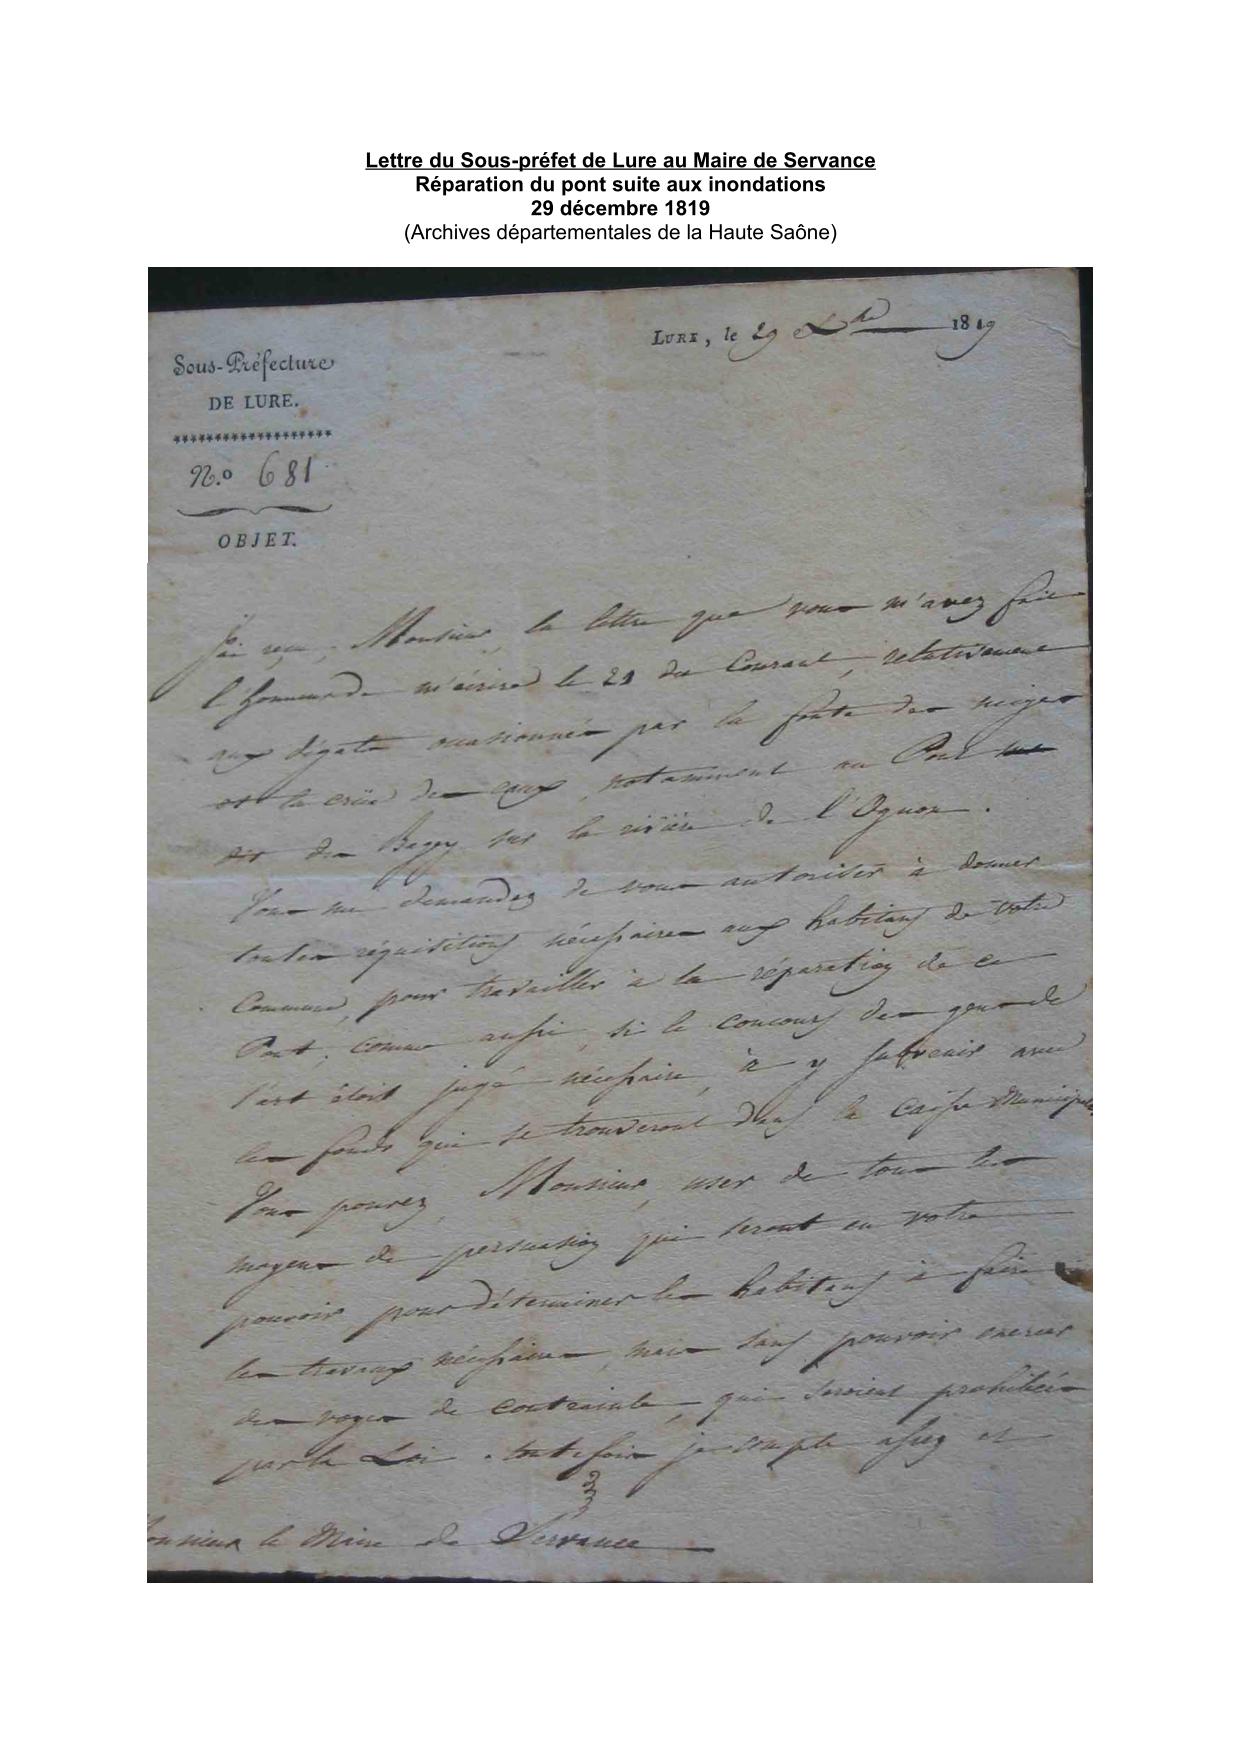 Lettre du Sous-préfet de Lure au Maire de Servance
Réparation du pont suite aux inondations
29 décembre 1819
(Archives départementales de la Haute Saône)
LURE, le 29 Xbre 1819
Sous-Préfecture
DE LURE.
N.º 681
OBJET.
J'ai reçu, Monsieur, la lettre que vous m'avez fait
l'honneur de m'écrire le 21 du Courant, relativement
aux dégats occasionnés par la fonte des neiges
et la crüe des eaux, notamment au Pont
dit des sur la rivière de l'Ognon.
Vous me demandez de vous autoriser à donner
toutes réquisitions nécessaires aux habitans de votre
Commune, pour travailler à la réparation de ce
Pont, comme aussi, si le concours des gens de
l'art étoit jugé nécessaire, à y subvenir avec
les fonds qui se trouveront dans la caisse Municipale.
Vous pourez, Monsieur, user de tous les
moyens de persuasion qui seront en votre
pouvoir pour déterminer les habitans à faire
les travaux nécessaires, mais sans pouvoir exercer
des voyes de contrainte, qui seroient prohibées
par la Loi. toutefois je compte assez et
Monsieur le Maire de Servance